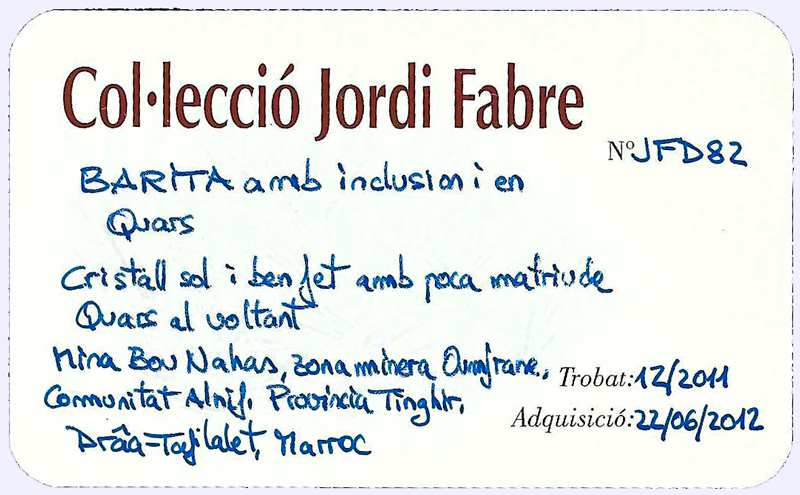 Col·lecció Jordi Fabre
Nº JFD82
BARITA amb inclusion i en
Quars
Cristall sol i ben fet amb poca matriu de
Quars al voltant
Mina Bou Nahas, zona minera Oumjrane,
Trobat: 12/2011
Comunitat Alnif. Província Tinghir,
Adquisició: 22/06/2012
Drâa-Tafilalet, Marroc